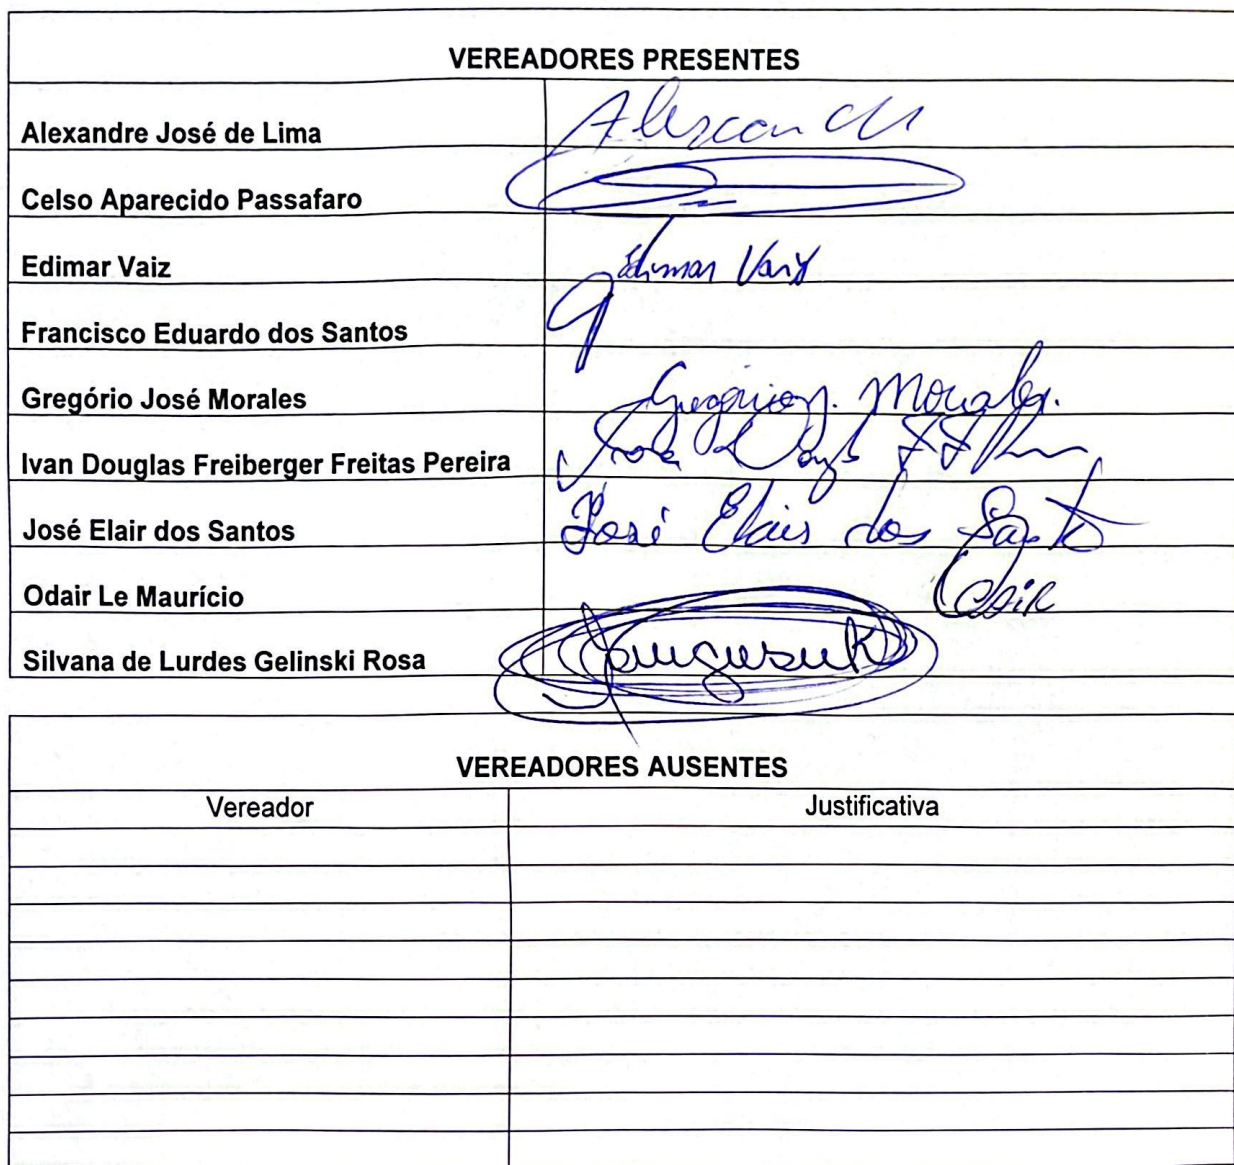 VEREADORES PRESENTES
Alexandre José de Lima Alexandre
Celso Aparecido Passafaro
Edimar Vaiz Edimar Vaiz
Francisco Eduardo dos Santos
Gregório José Morales Gregório J. Morales.
Ivan Douglas Freiberger Freitas Pereira
José Elair dos Santos José Elair dos Santos
Odair Le Maurício Odair
Silvana de Lurdes Gelinski Rosa
VEREADORES AUSENTES
Vereador Justificativa